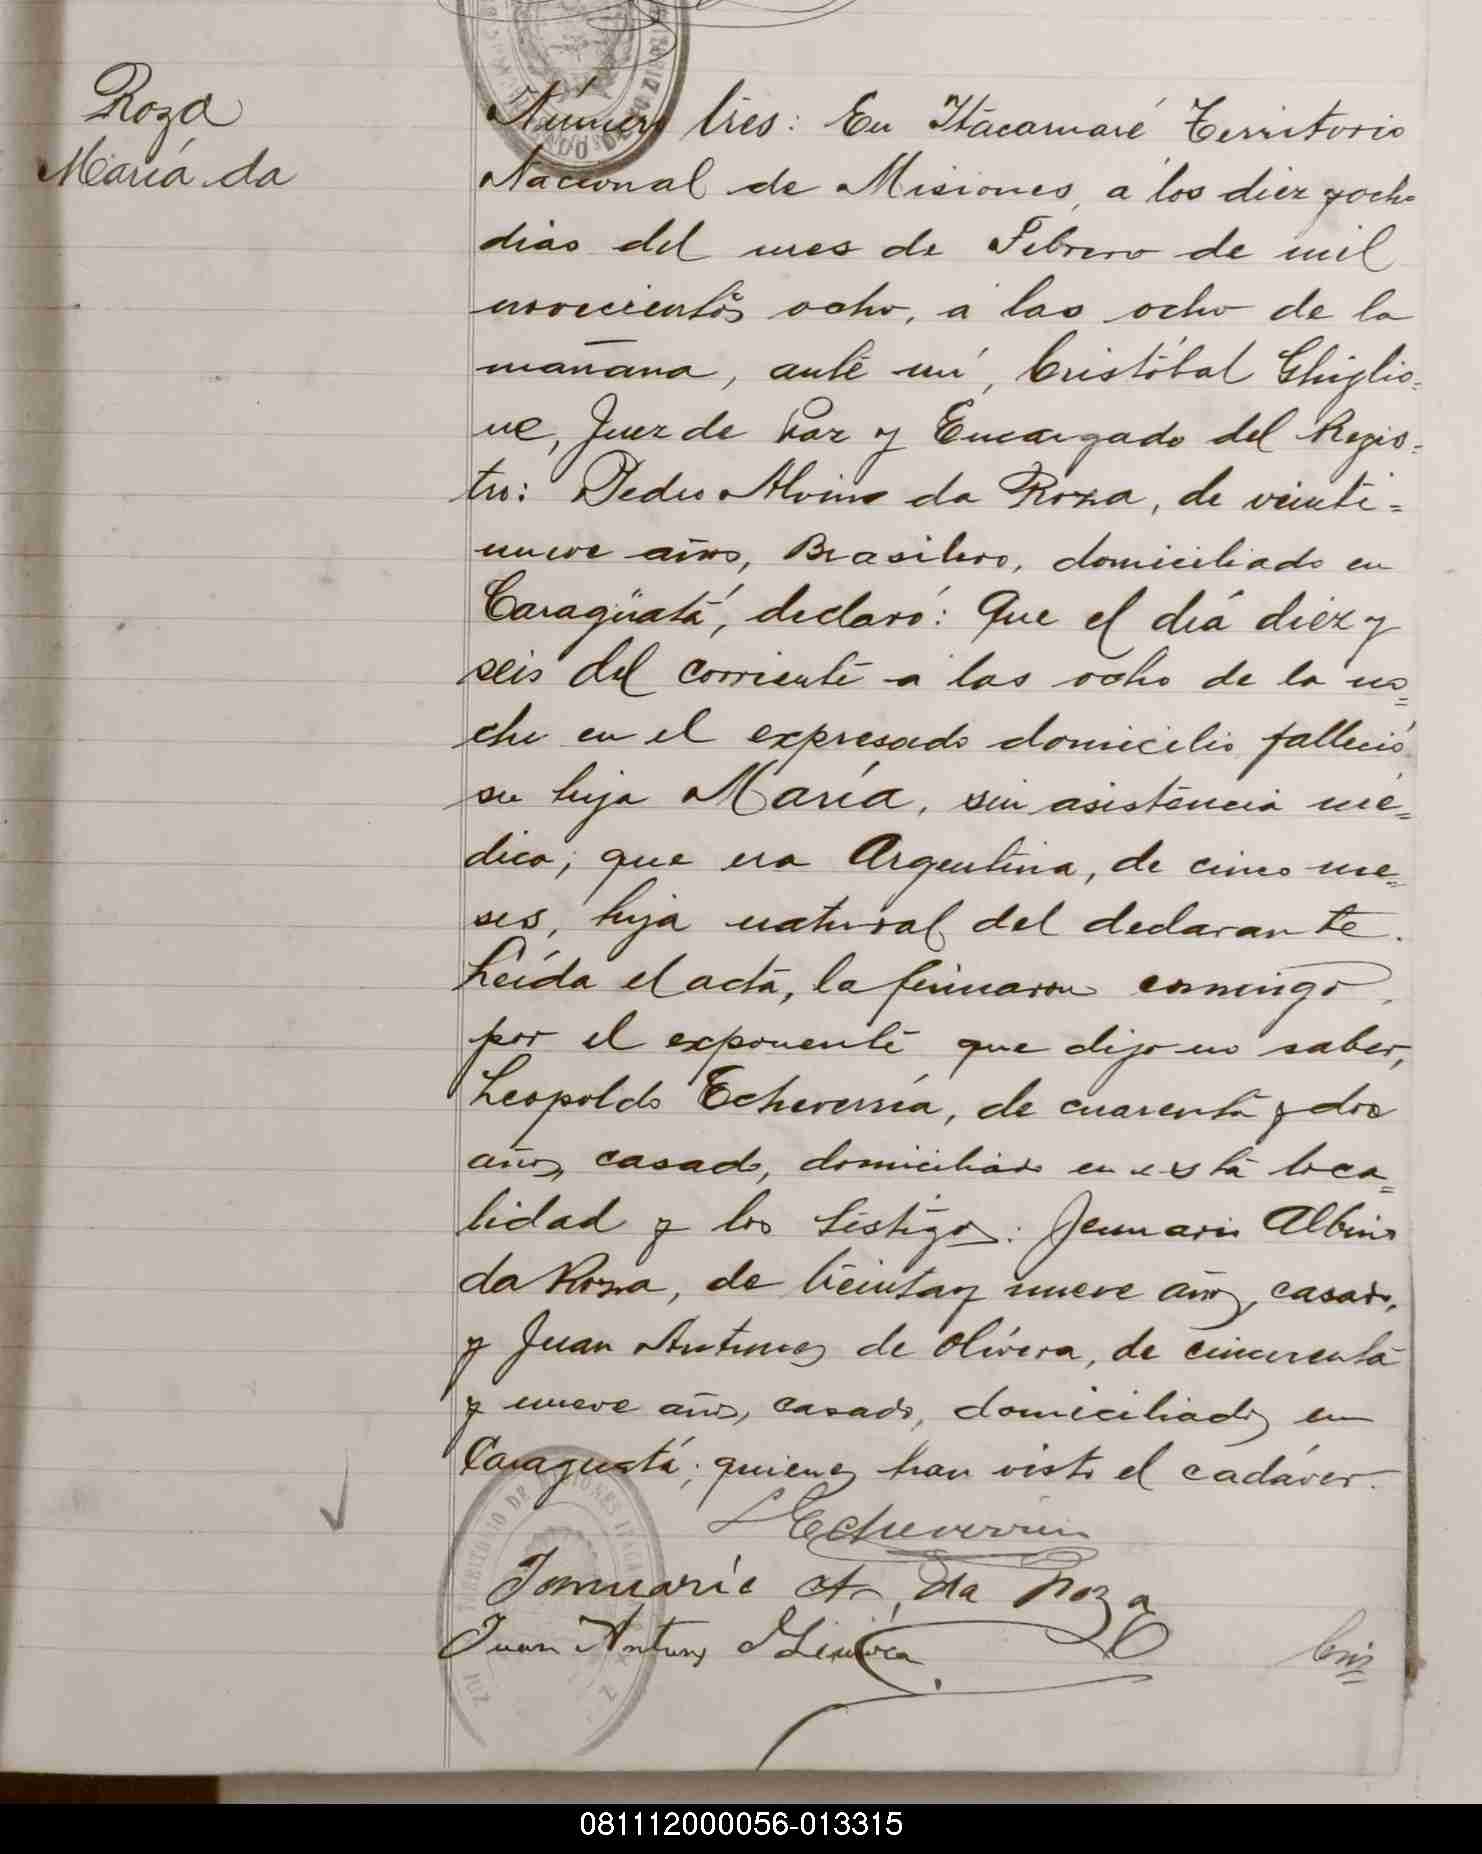 Roza
María da
Número tres: En Itacaruaré Territorio
Nacional de Misiones, a los diez y ocho
dias del mes de Febrero de mil
novecientos ocho, a las ocho de la
mañana, ante mí, Cristóbal Ghiglio=
ne, Juez de Paz y Encargado del Regis=
tro: Pedro Alvino da Roza, de veinti=
nueve años, Brasilero, domiciliado en
Caragüatá, declaró: Que el día diez y
seis del corriente a las ocho de la no=
che en el expresado domicilio falleció
su hija María, sin asistencia mé=
dica; que era Argentina, de cinco me=
ses, hija natural del declarante.
Leída el acta, la firmaron conmigo,
por el exponente que dijo no saber,
Leopoldo Echeverría, de cuarenta y dos
años, casado, domiciliado en esta loca=
lidad y los testigos: Jenuario Albino
da Roza, de treinta y nueve años, casado,
y Juan Antunes de Olivera, de cincuenta
y nueve años, casado, domiciliados en
Caraguatá; quienes han visto el cadáver.
L Echeverría
Januario A. da Roza
Juan Antunes
Cris=
TERRITORIO DE MISIONES ITACA
JUZ
081112000056-013315